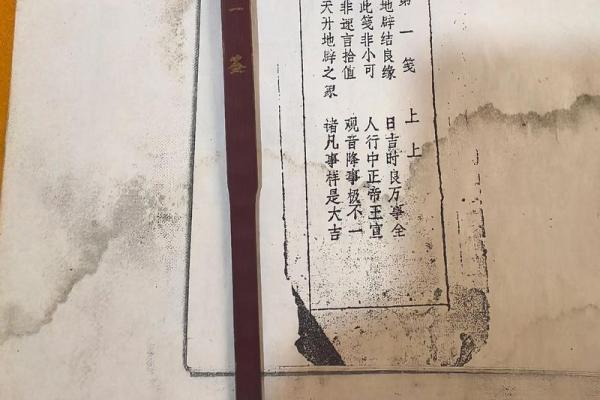 第一笺 上上
地辟结良缘 日吉时良万事全
此笺非小可 人行中正帝王宣
非逐言拾值 观音降事极不一
天升地辟之象 诸凡事样是大吉
一签